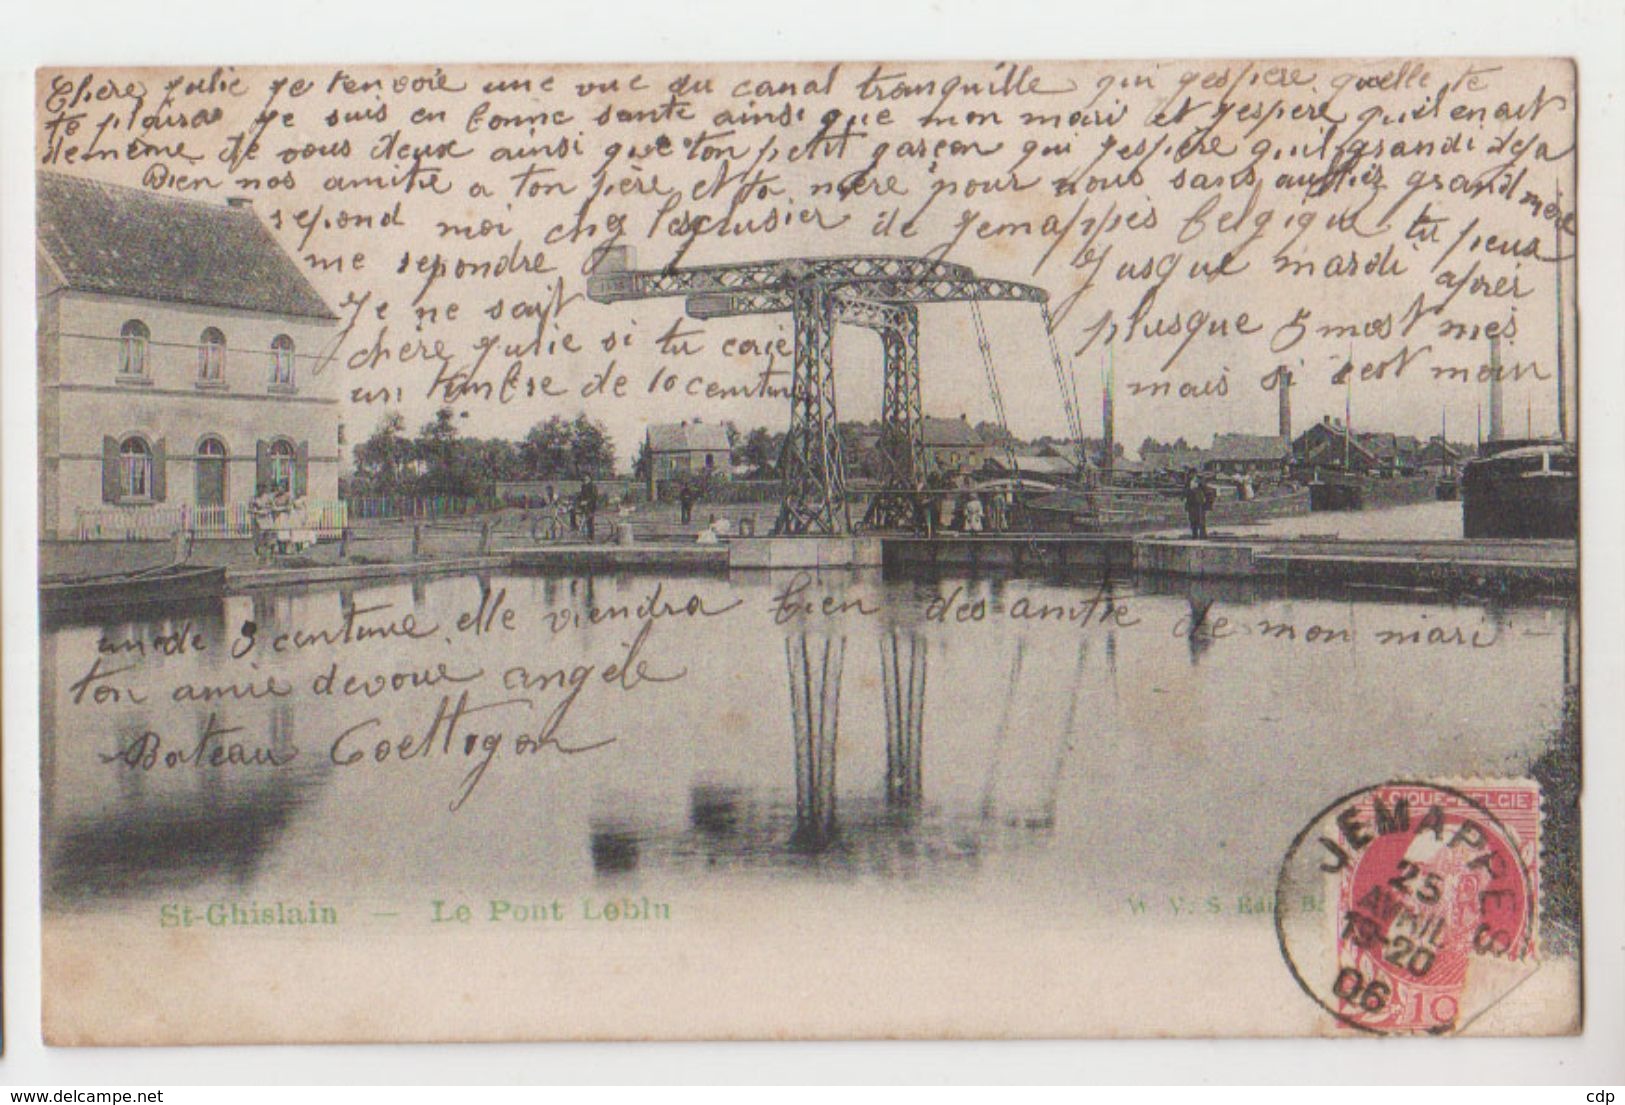 Chère julie je tenvoie une vue du canal tranquille qui jespere quelle te
te plaira je suis en bonne sante ainsi que mon mari et jespere quil en ait
de meme de vous deux ainsi que ton petit garçon qui jespère quil grandi deja
Bien nos amitié a ton père et ta mère pour nous sans oublier grand mère
repond moi chez lesclusier de Jemappes belgique tu peux
me repondre jusque mardi après
je ne sait plusque 5 most mes
chère julie si tu
un timbre de 10 centime mais si cest moin
un de 5 centime elle viendra bien des amitie de mon mari
ton amie devoué angèle
Bateau
St-Ghislain — Le Pont
W. V. S
BELGIQUE-BELGIE
JEMAPPES
25
AVRIL
19-20
06
10
delcampe.net
cdp